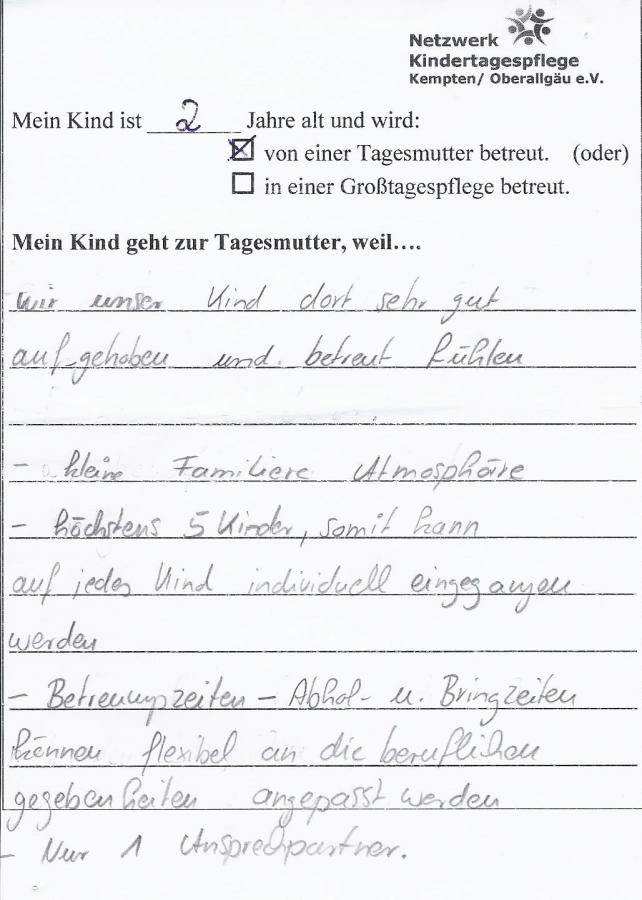 Netzwerk
Kindertagespflege
Kempten/ Oberallgäu e.V.
Mein Kind ist 2 Jahre alt und wird:
☒ von einer Tagesmutter betreut. (oder)
☐ in einer Großtagespflege betreut.
Mein Kind geht zur Tagesmutter, weil….
wir unser Kind dort sehr gut
aufgehoben und betreut fühlen
- kleine Familiere Atmosphäre
- höchstens 5 Kinder, somit kann
auf jedes Kind individuell eingegangen
werden
- Betreuungszeiten - Abhol- u. Bringzeiten
können flexibel an die beruflichen
gegebenheiten angepasst werden
- Nur 1 Ansprechpartner.